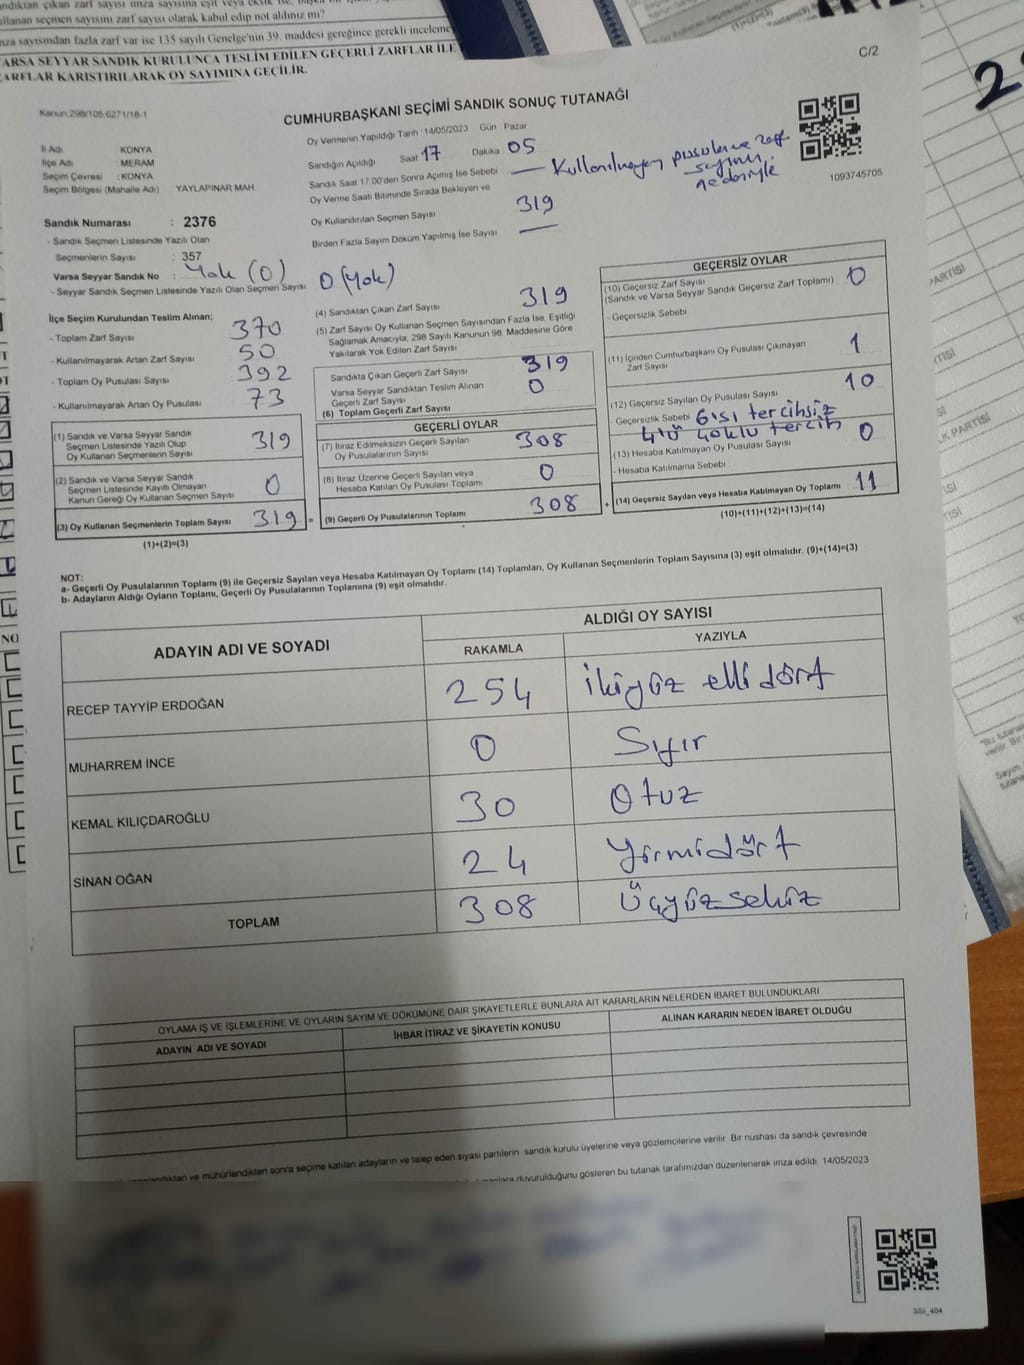 ullanan seçmen sayısını zarf sayısı olarak kabul edip not aldınız mı?
nza sayısından fazla zarf var ise 135 sayılı Genelge'nin 39. maddesi gereğince gerekli inceleme
VARSA SEYYAR SANDIK KURULUNCA TESLİM EDİLEN GEÇERLİ ZARFLAR İLE
ZARFLAR KARIŞTIRILARAK OY SAYIMINA GEÇİLİR.
C/2
Kanun,298/105,6271/18-1
CUMHURBAŞKANI SEÇİMİ SANDIK SONUÇ TUTANAĞI
İl Adı KONYA
İlçe Adı MERAM
Seçim Çevresi : KONYA
Seçim Bölgesi (Mahalle Adı) YAYLAPINAR MAH.
Oy Vermenin Yapıldığı Tarih 14/05/2023 Gün Pazar
Sandığın Açıldığı Saat 17 Dakika 05
Sandık Saat 17.00'den Sonra Açımış İse Sebebi — Kullanılmayan pusula ve zarf sayımı nedeniyle
Oy Verme Saati Bitiminde Sırada Bekleyen ve
Oy Kullandırılan Seçmen Sayısı 319
Birden Fazla Sayım Döküm Yapılmış İse Sayısı —
1093745705
Sandık Numarası : 2376
- Sandık Seçmen Listesinde Yazılı Olan
Seçmenlerin Sayısı : 357
Varsa Seyyar Sandık No : Yok (0)
- Seyyar Sandık Seçmen Listesinde Yazılı Olan Seçmen Sayısı 0 (Yok)
İlçe Seçim Kurulundan Teslim Alınan;
- Toplam Zarf Sayısı 370
- Kullanılmayarak Artan Zarf Sayısı 50
- Toplam Oy Pusulası Sayısı 392
- Kullanılmayarak Artan Oy Pusulası 73
(1) Sandık ve Varsa Seyyar Sandık
Seçmen Listesinde Yazılı Olup
Oy Kullanan Seçmenlerin Sayısı 319
(2) Sandık ve Varsa Seyyar Sandık
Seçmen Listesinde Kayıtlı Olmayan
Kanun Gereği Oy Kullanan Seçmen Sayısı 0
(3) Oy Kullanan Seçmenlerin Toplam Sayısı 319 =
(1)+(2)=(3)
(4) Sandıktan Çıkan Zarf Sayısı 319
(5) Zarf Sayısı Oy Kullanan Seçmen Sayısından Fazla İse, Eşitliği
Sağlamak Amacıyla, 298 Sayılı Kanunun 98. Maddesine Göre
Yakılarak Yok Edilen Zarf Sayısı
Sandıkta Çıkan Geçerli Zarf Sayısı 319
Varsa Seyyar Sandıktan Teslim Alınan
Geçerli Zarf Sayısı 0
(6) Toplam Geçerli Zarf Sayısı
GEÇERLİ OYLAR
(7) İtiraz Edilmeksizin Geçerli Sayılan
Oy Pusulalarının Sayısı 308
(8) İtiraz Üzerine Geçerli Sayılan veya
Hesaba Katılan Oy Pusulası Toplamı 0
(9) Geçerli Oy Pusulalarının Toplamı 308 +
GEÇERSİZ OYLAR
(10) Geçersiz Zarf Sayısı
(Sandık ve Varsa Seyyar Sandık Geçersiz Zarf Toplamı) 0
- Geçersizlik Sebebi
(11) İçinden Cumhurbaşkanı Oy Pusulası Çıkmayan
Zarf Sayısı 1
(12) Geçersiz Sayılan Oy Pusulası Sayısı 10
- Geçersizlik Sebebi 6'sı tercihsiz
4'ü çoklu tercih
(13) Hesaba Katılmayan Oy Pusulası Sayısı 0
- Hesaba Katılmama Sebebi
(14) Geçersiz Sayılan veya Hesaba Katılmayan Oy Toplamı 11
(10)+(11)+(12)+(13)=(14)
NOT:
a- Geçerli Oy Pusulalarının Toplamı (9) ile Geçersiz Sayılan veya Hesaba Katılmayan Oy Toplamı (14) Toplamları, Oy Kullanan Seçmenlerin Toplam Sayısına (3) eşit olmalıdır. (9)+(14)=(3)
b- Adayların Aldığı Oyların Toplamı, Geçerli Oy Pusulalarının Toplamına (9) eşit olmalıdır.
ADAYIN ADI VE SOYADI ALDIĞI OY SAYISI
RAKAMLA YAZIYLA
RECEP TAYYİP ERDOĞAN 254 İkiyüz elli dört
MUHARREM İNCE 0 Sıfır
KEMAL KILIÇDAROĞLU 30 Otuz
SİNAN OĞAN 24 Yirmidört
TOPLAM 308 Üçyüzsekiz
OYLAMA İŞ VE İŞLEMLERİNE VE OYLARIN SAYIM VE DÖKÜMÜNE DAİR ŞİKAYETLERLE BUNLARA AİT KARARLARIN NELERDEN İBARET BULUNDUKLARI
ADAYIN ADI VE SOYADI İHBAR İTİRAZ VE ŞİKAYETİN KONUSU ALINAN KARARIN NEDEN İBARET OLDUĞU
ve mühürlendikten sonra seçime katılan adayların ve talep eden siyasi partilerin sandık kurulu üyelerine veya gözlemcilerine verilir. Bir nüshası da sandık çevresinde
duyurulduğunu gösteren bu tutanak tarafımızdan düzenlenerek imza edildi. 14/05/2023
SSI_404